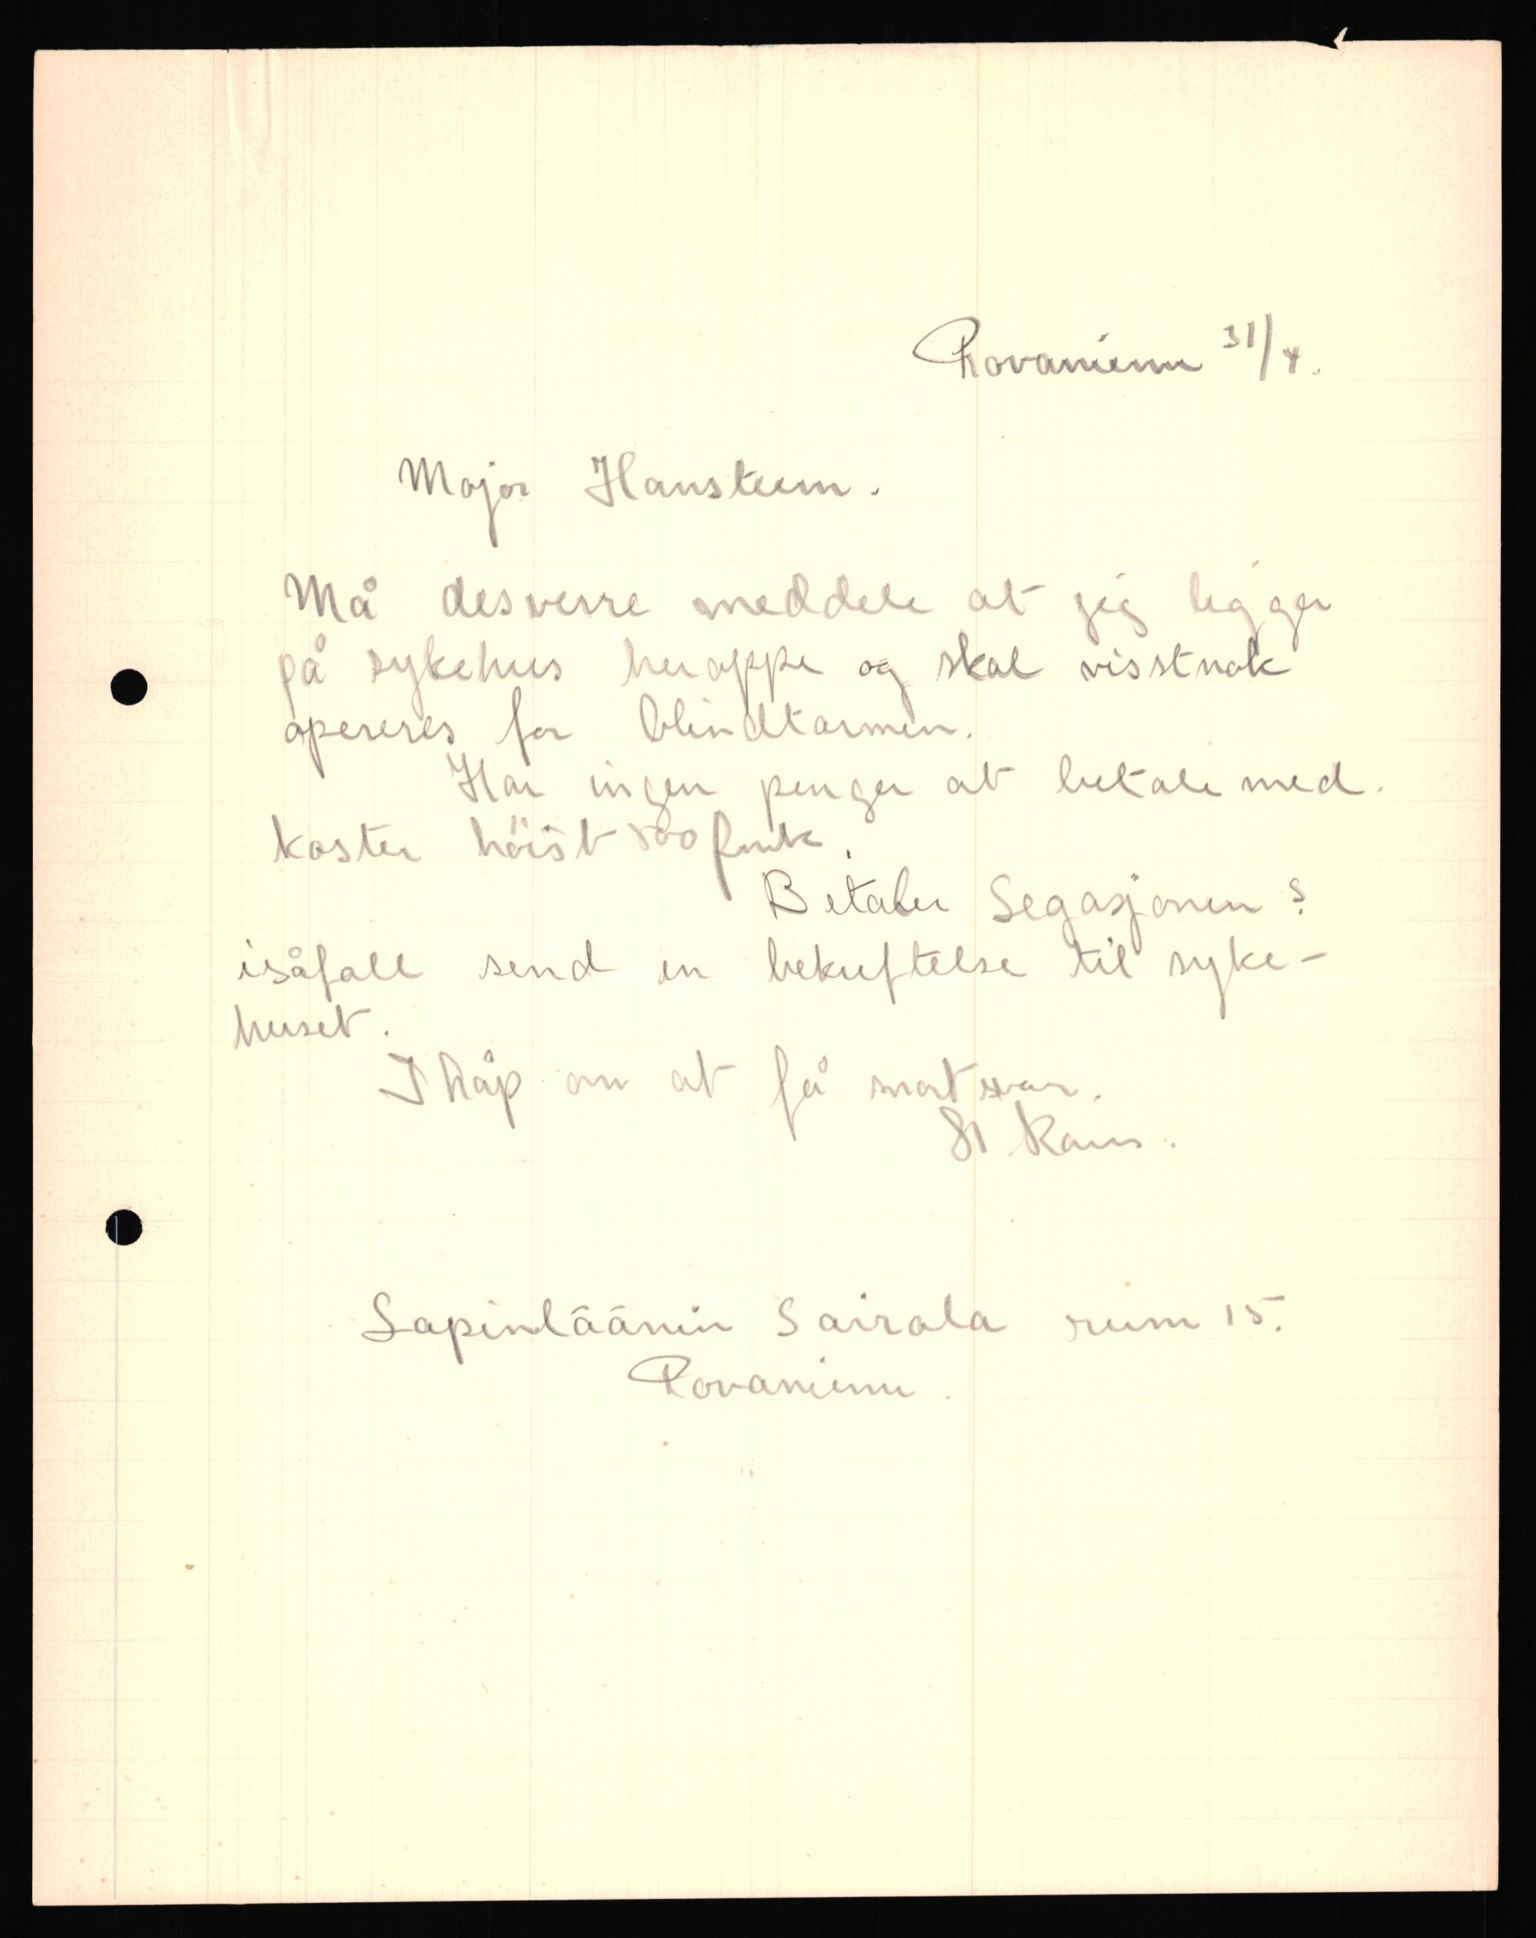 Rovaniemi 31/4.
Major Hansteen.
Må desverre meddele at jeg ligger
på sykehus heroppe og skal visstnok
opereres for blindtarmen.
Har ingen penger at betale med.
koster höist 500 fmk.
Betaler Legasjonen?
isåfall send en bekreftelse til syke-
huset.
I håp om at få snart svar.
Lapinläänin Sairala rum 15.
Rovaniemi.